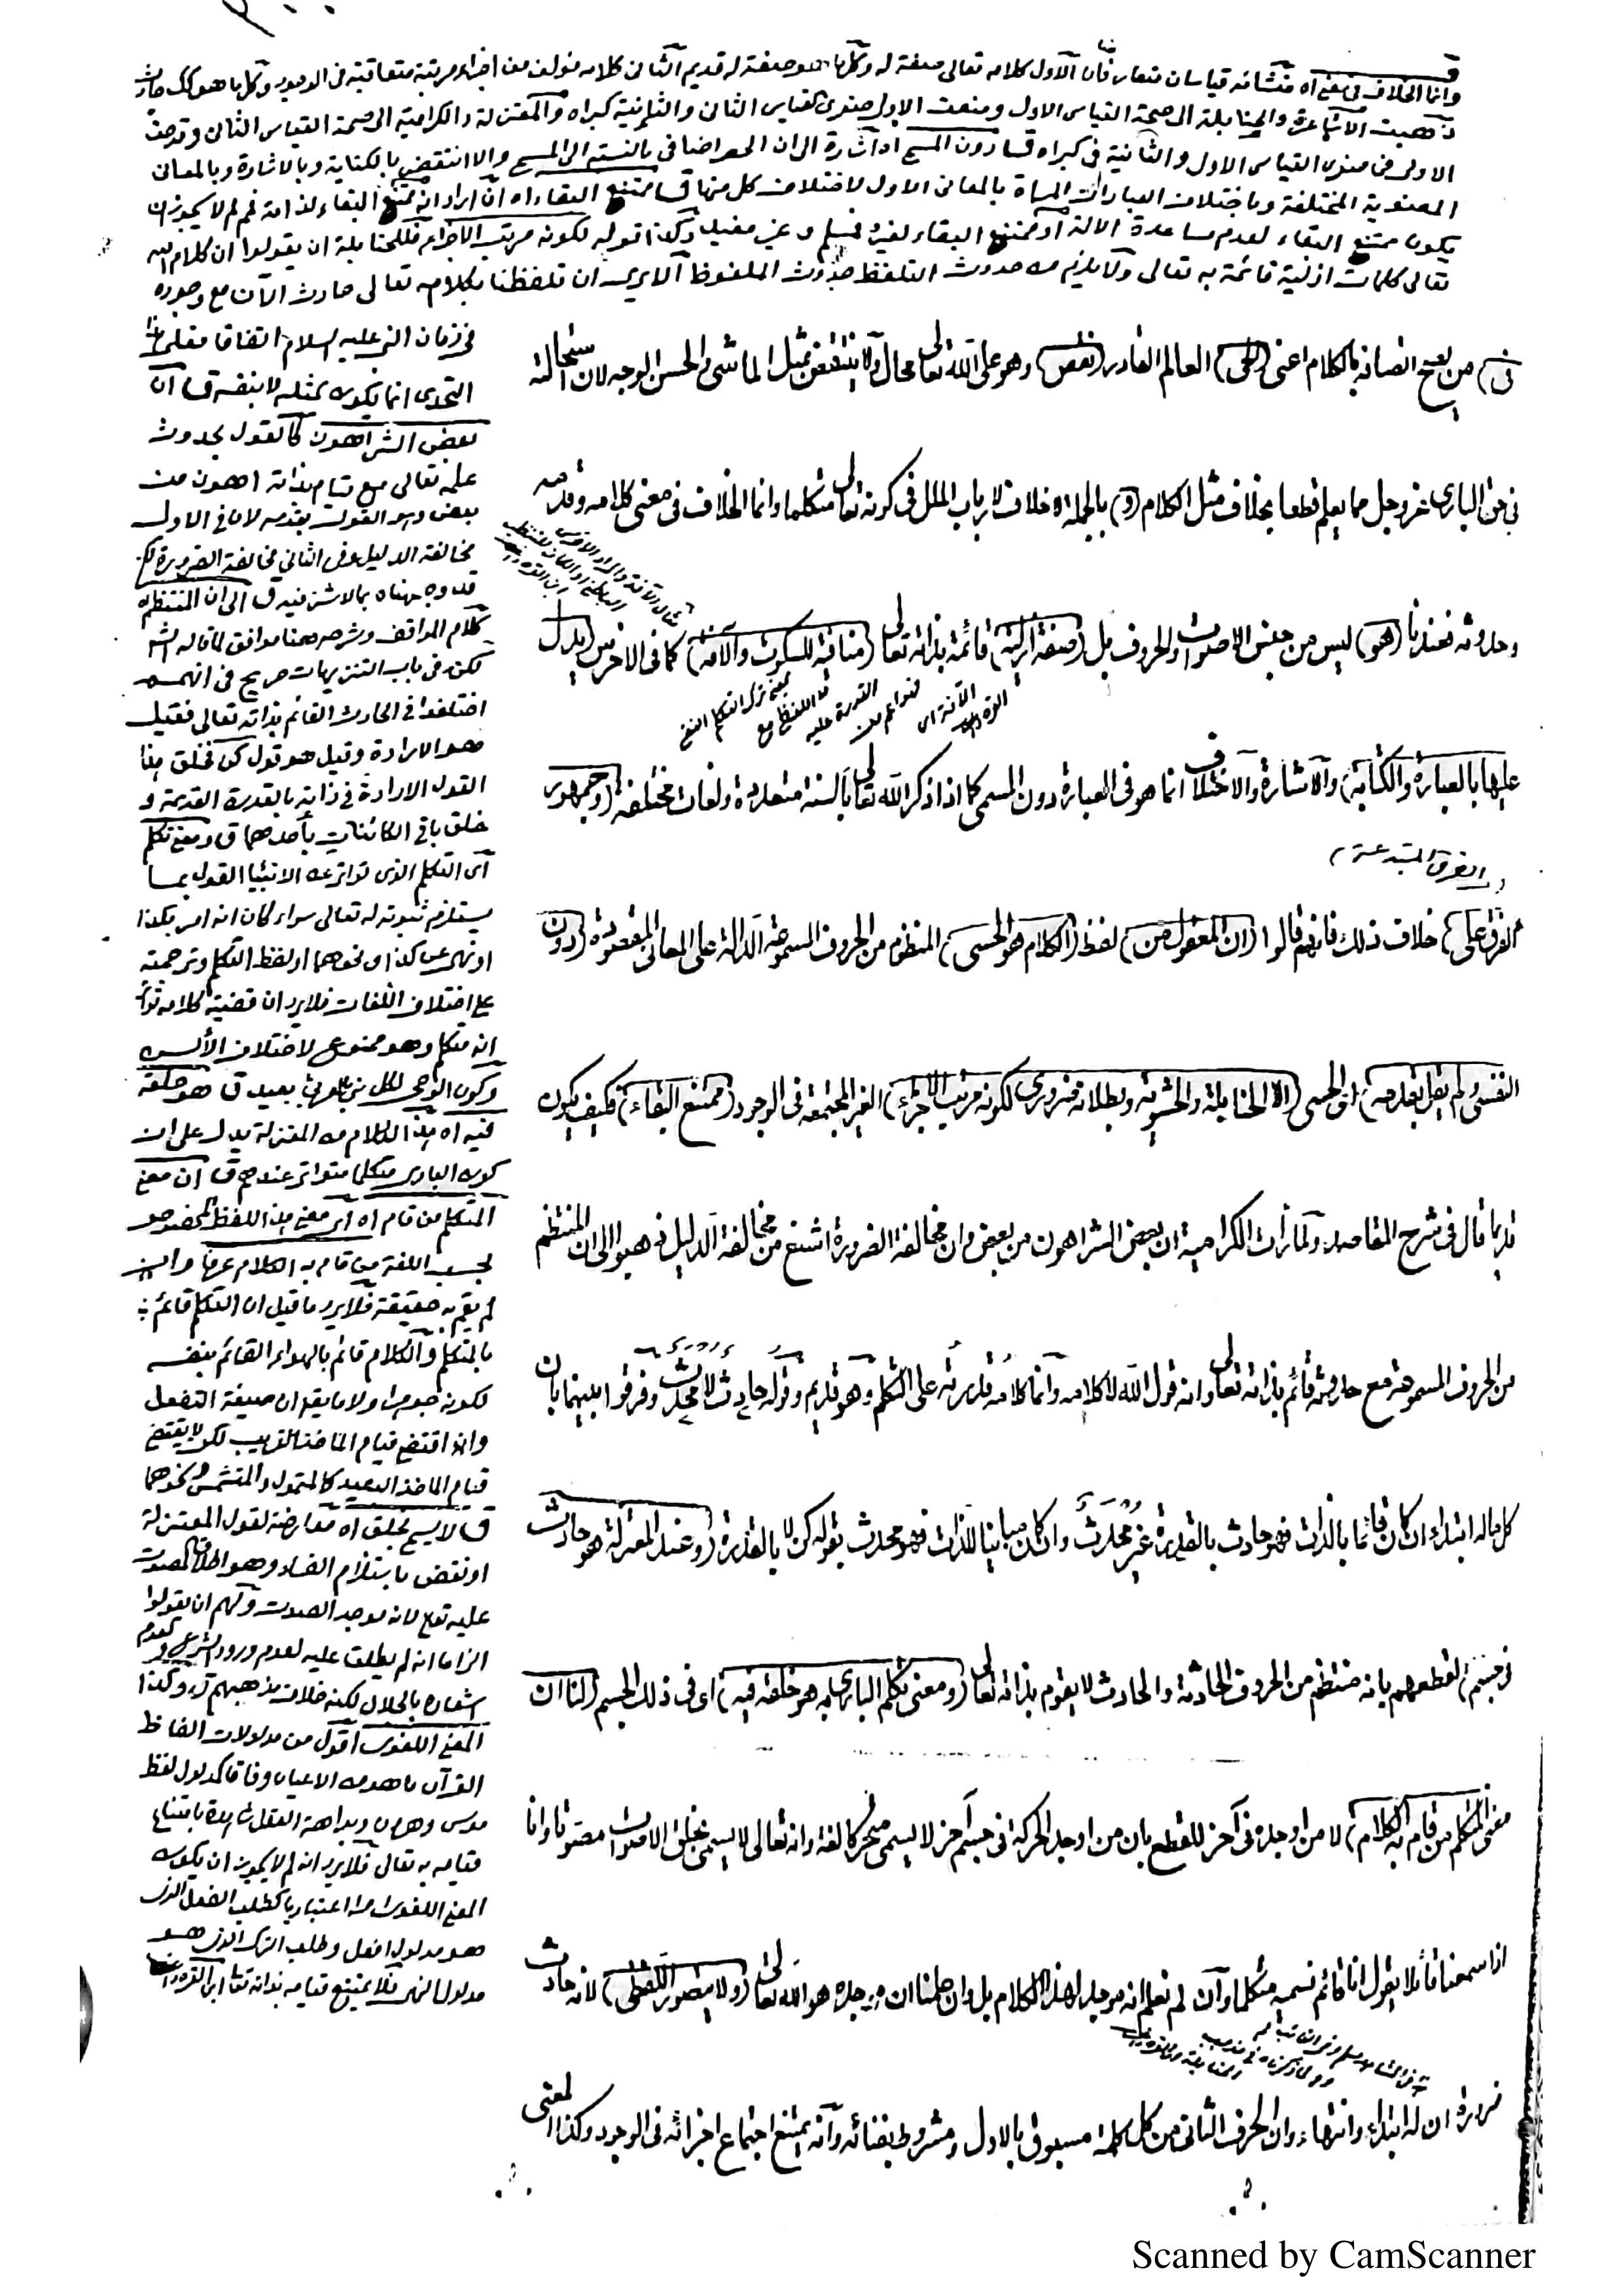 وانما الخلاف في معنى اه منشائه قياسان متعارضان الاول كلامه تعالى صفة له وكلما هو صفة له قديم الثاني كلامه مؤلف من اجزاء مرتبة متعاقبة في الوجود وكل ما هو كذلك حادث
ذهبت الاشاعرة والحنابلة الى صحة القياس الاول ومنعت الاولى صغرى القياس الثاني والثانية كبراه والمعتزلة والكرامية الى صحة القياس الثاني وقدحت
الاولى في صغرى القياس الاول والثانية في كبراه ق دون المسمى اه اشارة الى ان الحصر اضافي بالنسبة الى المسمى والا انتقض بالكناية وبالاشارة وبالمعاني
المصنوية المختلفة وباختلاف العبارات المسماة بالمعاني الاول لاختلاف كل منها ق ممتنع البقاء اه ان اراد انه ممتنع البقاء لذاته فم لم لا يجوز ان
يكون ممتنع البقاء لعدم مساعدة الالة او ممتنع البقاء لغيره فمسلم وغير مفيد وكذا قوله لكونه مرتب الاجزاء فللحنابلة ان يقولوا ان كلام الله
تعالى كلمات ازلية قائمة به تعالى ولا يلزم من حدوث التلفظ حدوث الملفوظ الا يرى ان تلفظنا بكلامه تعالى حادث الآن مع وجوده
في زمان النبي عليه السلام اتفاقا
التحدي انما يكون بمثله لا بنفسه ق ان
بعض الشر اهون كالقول بحدوث
علمه تعالى مع قيام بذاته اهون من
بعض وهو القول بقدمه لان في الاول
مخالفة الدليل وفي الثاني مخالفة الضرورة
ق الى ان المنتظم اه
كلام المواقف وشرحه هنا موافق لما قاله
لكن في باب التنزيهات صريح في انهم
اختلفوا في الحادث القائم بذاته تعالى فقيل
هو الارادة وقيل هو قول كن فخلق هذا
القول او الارادة في ذاته بالقدرة القديمة و
خلق باقي الكائنات باحدهما ق ومعنى تكلم
اى التكلم الذي تواتر عن الانبياء القول بما
يستلزم ثبوته له تعالى سواء كان انه امر بكذا
او نهى عن كذا او نحوهما او لفظ التكلم وترجمته
على اختلاف اللغات فلا يرد ان قضية كلامه تواتر
انه متكلم وهو ممنوع لاختلاف الألسن
بعيد ق هو خلقه
فيه اه هذا الكلام من المعتزلة يدل على ان
كون البارى متكلما متواتر عندهم ق ان معنى
المتكلم من قام اه اى معنى هذا اللفظ المخصوص
بحسب اللغة من قام به الكلام عرفا وان
لم يقم به حقيقة فلا يرد ما قيل ان التكلم قائم
بالمتكلم والكلام قائم بالهواء القائم بنفسه
لكونه جوهرا ولا ما يقع ان صيغة التفعل
وان اقتضى قيام المأخذ القريب لكن لا يقتضي
قيام المأخذ البعيد كالمتمول والمتشمس ونحوهما
ق لا يسمى بخلق اه معارضة لقول المعتزلة
او نقض باستلزام الفساد وهو اطلاق المصوت
عليه تعالى لانه موجد الصوت ولهم ان يقولوا
الزاما انه لم يطلق عليه لعدم ورود الشرع
اشعاره بالجلال لكنه خلاف مذهبهم ق وكذا
المعنى اللغوي اقول من مدلولات الفاظ
القرآن ما هو من الاعيان وفاقا كمدلول لفظ
موسى وهارون وبداهة العقل شاهدة بامتناع
قيامه به تعالى فلا يرد انه لم لا يجوز ان يكون
المعنى اللغوي امرا اعتباريا كطلب الفعل الذي
هو مدلول افعل وطلب الترك الذي هو
مدلول النهي فلا يمتنع قيامه بذاته تعالى
في) من يصح اتصافه بالكلام اعنى (الحى) العالم القادر (نقص) وهو على الله تعالى محال ولا ينتقض بمثل الماشى والحسن الوجه لان استحالته
في حق البارى عز وجل مما يعلم قطعا بخلاف مثل الكلام (و) بالجملة لا خلاف لارباب الملل في كونه تعالى متكلما وانما الخلاف في معنى كلامه وقدمه
وحدوثه فعندنا (هو) ليس من جنس الاصوات والحروف بل (صفة ازلية) قائمة بذاته تعالى (منافية للسكوت والآفة) كما في الاخرس (يدل
عليها بالعبارة والكتابة) والاشارة والاختلاف انما هو في العبارة دون المسمى كما اذا ذكر الله تعالى بألسنة متعددة ولغات مختلفة (وجمهور
الفرق المبتدعة
الفرق على) خلاف ذلك فانهم قالوا (ان المعقول من) لفظ (الكلام هو الحسى) المنظوم من الحروف المسموعة الدالة على المعاني المقصودة (دون
النفسى ولم يقل بقدمه) اى الحسى (الا الحنابلة والحشوية وبطلانه ضرورى لكونه مرتب الاجزاء) الغير المجتمعة في الوجود (ممتنع البقاء) فكيف يكون
قديما قال في شرح المقاصد ولما رأت الكرامية ان بعض الشر اهون من بعض وان مخالفة الضرورة اشنع من مخالفة الدليل ذهبوا الى ان المنتظم
من الحروف المسموعة مع حدوثه قائم بذاته تعالى وانه قول الله لا كلامه وانما كلامه قدرته على التكلم وهو قديم وقوله حادث لا محدث وفرقوا بينهما بان
كل ما له ابتداء ان كان قائما بالذات فهو حادث بالقدرة غير محدث وان كان مباينا للذات فهو محدث بقوله كن لا بالقدرة (وعند المعتزلة هو حادث
في جسم) لقطعهم بانه منتظم من الحروف الحادثة والحادث لا يقوم بذاته تعالى (ومعنى تكلم البارى به هو خلقه فيه) اى في ذلك الجسم (لنا ان
معنى المتكلم من قام به الكلام) لا من اوجده في آخر للقطع بان من اوجد الحركة في جسم آخر لا يسمى متحركا لغة وانه تعالى لا يسمى بخلق الاصوات مصوتا وانا
اذا سمعنا قائلا يقول انا قائم نسميه متكلما وان لم نعلم انه موجد لهذا الكلام بل وان علمنا ان موجده هو الله تعالى (ولا يتصور اللفظى) لانه حادث
ضرورة ان له ابتداء وانتهاء وان الحرف الثانى من كل كلمة مسبوق بالاول ومشروط بفنائه وانه يمتنع اجتماع اجزائه في الوجود وكذا المعنى
Scanned by CamScanner